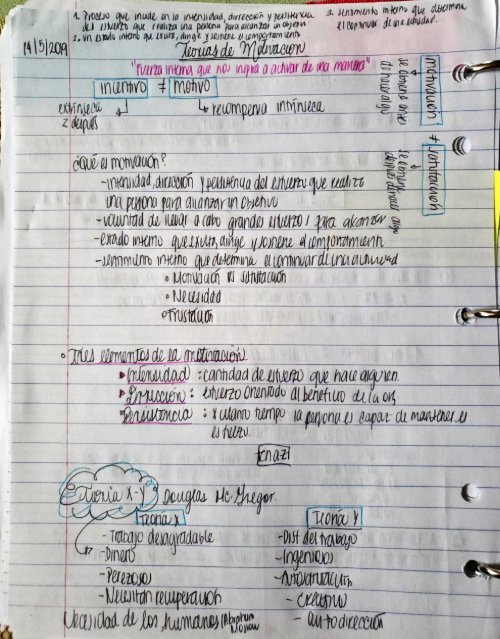 1. Proceso que incide en la intensidad, dirección y persistencia
del esfuerzo que realiza una persona para alcanzar un objetivo
2. Un estado interno que excita, dirige y sostiene el comportamiento
3. sentimiento interno que determina
el continuar de una actividad.
14/5/2019
Teorias de Motivación
"Fuerza interna que nos inspira a activar de una manera"
incentivo ≠ motivo
extrínseca
z después
recompensa intrínseca
motivación
se obtiene antes
de hacer algo
≠ satisfacción
se obtiene
después de hacer algo
¿Qué es motivación?
- intensidad, dirección y persistencia del esfuerzo que realiza
una persona para alcanzar un objetivo
- voluntad de llevar a cabo grandes esfuerzos para alcanzar
- estado interno que excita, dirige y sostiene el comportamiento
- sentimiento interno que determina el continuar de una actividad
• Motivación vs satisfacción
• Necesidad
• Frustación
• Tres elementos de la motivación
▸ Intensidad: cantidad de esfuerzo que hace alguien.
▸ Dirección: esfuerzo orientado al beneficio de la org
▸ Persistencia: x cuanto tiempo la persona es capaz de mantener el
esfuerzo.
Teoria X-Y Douglas Mc. Gregor.
Teoría X
- Trabajo desagradable
- Dinero
- Perezosos
- Necesitan recuperación
Teoría Y
- Dist del trabajo
- Ingeniosos
- Automotivación
- creativo
- autodirección
Necesidad de los humanos (Abraham
Maslow